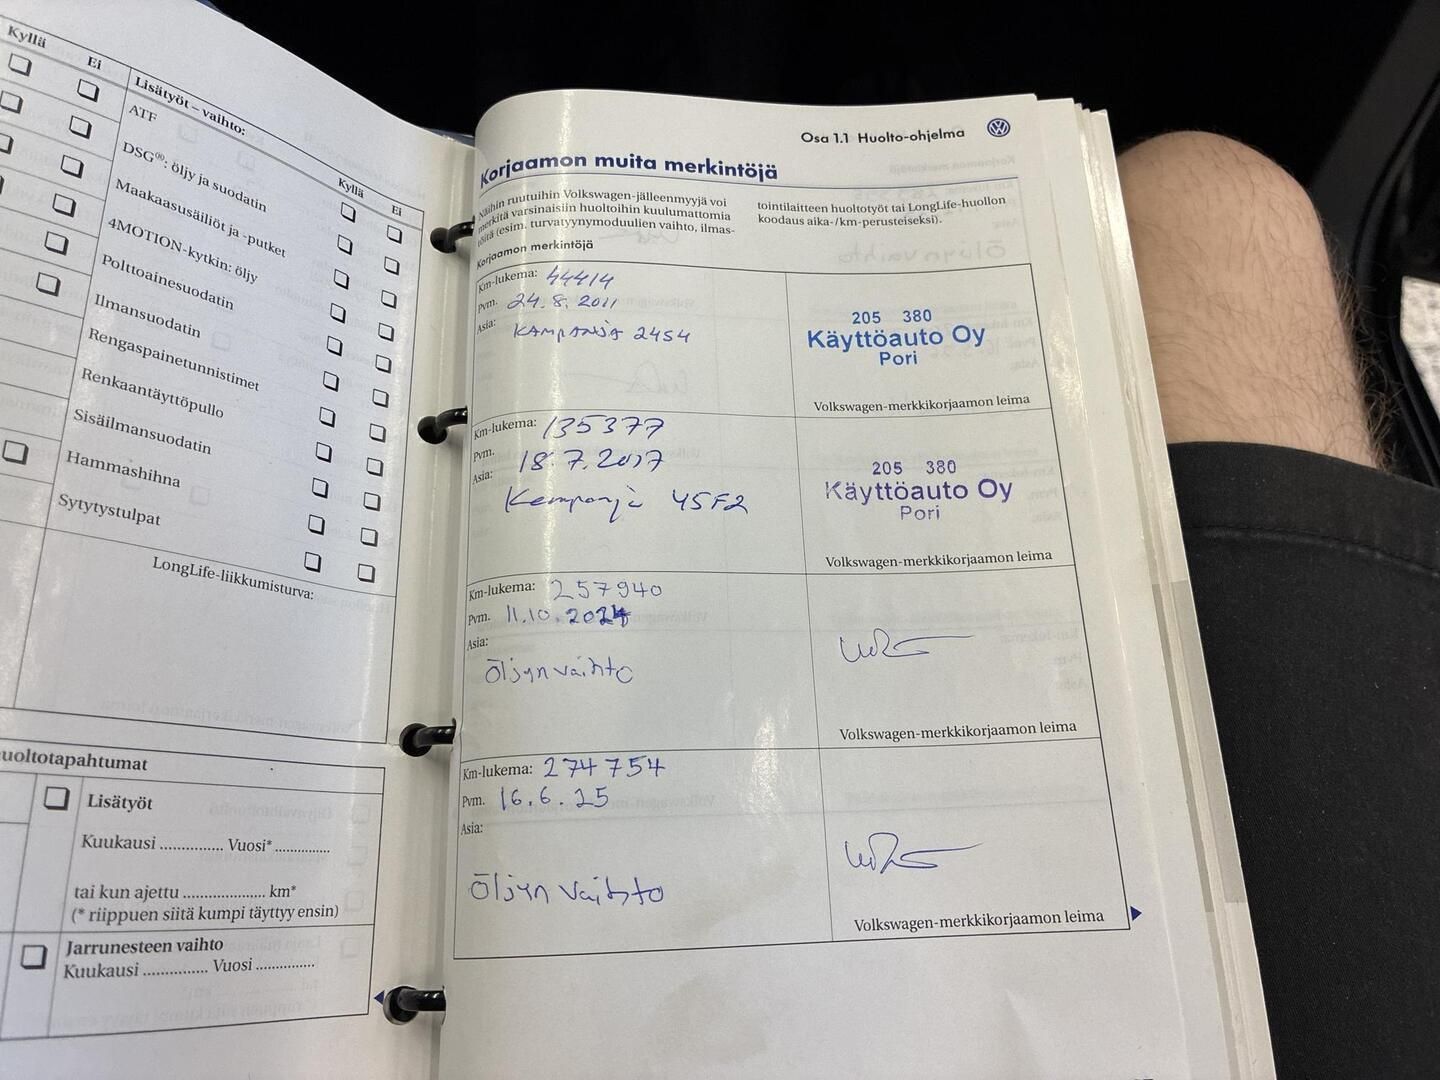 Kyllä
Ei
Lisätyöt – vaihto:
Kyllä
Ei
ATF
DSG®: öljy ja suodatin
Maakaasusäiliöt ja -putket
4MOTION-kytkin: öljy
Polttoainesuodatin
Ilmansuodatin
Rengaspainetunnistimet
Renkaantäyttöpullo
Sisäilmansuodatin
Hammashihna
Sytytystulpat
LongLife-liikkumisturva:
uoltotapahtumat
Lisätyöt
Kuukausi ............... Vuosi* ...............
tai kun ajettu ..................... km*
(* riippuen siitä kumpi täyttyy ensin)
Jarrunesteen vaihto
Kuukausi ............... Vuosi ...............
Osa 1.1 Huolto-ohjelma
Korjaamon muita merkintöjä
Näihin ruutuihin Volkswagen-jälleenmyyjä voi
merkitä varsinaisiin huoltoihin kuulumattomia
töitä (esim. turvatyynymoduulien vaihto, ilmas-
tointilaitteen huoltotyöt tai LongLife-huollon
koodaus aika-/km-perusteiseksi).
Korjaamon merkintöjä
Km-lukema: 44414
Pvm. 24.8.2011
Asia: KAMPANJA 24S4
205 380
Käyttöauto Oy
Pori
Volkswagen-merkkikorjaamon leima
Km-lukema: 135377
Pvm. 18.7.2017
Asia:
Kampanja 45F2
205 380
Käyttöauto Oy
Pori
Volkswagen-merkkikorjaamon leima
Km-lukema: 257940
Pvm. 11.10.2024
Asia:
Öljynvaihto
Volkswagen-merkkikorjaamon leima
Km-lukema: 274754
Pvm. 16.6.25
Asia:
Öljyn vaihto
Volkswagen-merkkikorjaamon leima